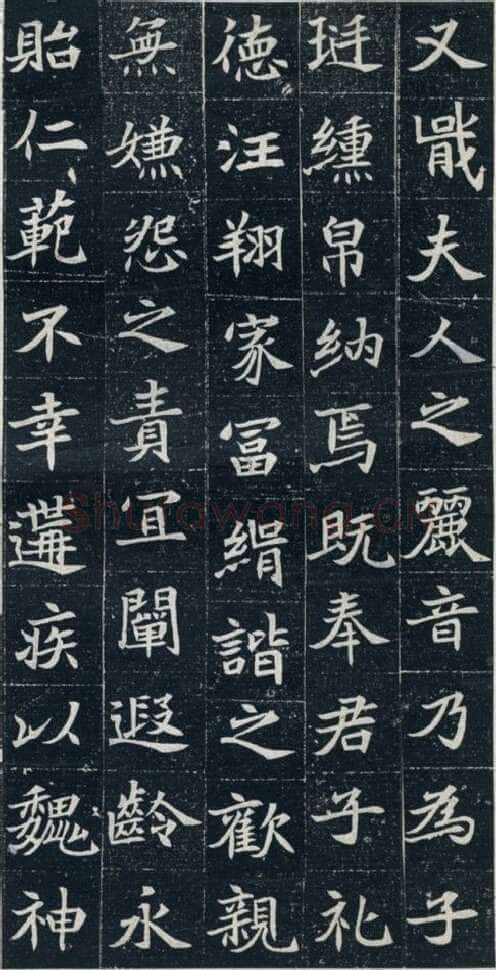 又戢夫人之麗音乃為子
珽纁帛納焉既奉君子礼
徳汪翔家冨絹諧之歡親
無嫌怨之責宜闡遐齡永
貽仁範不幸遘疾以魏神
shufawang.cn